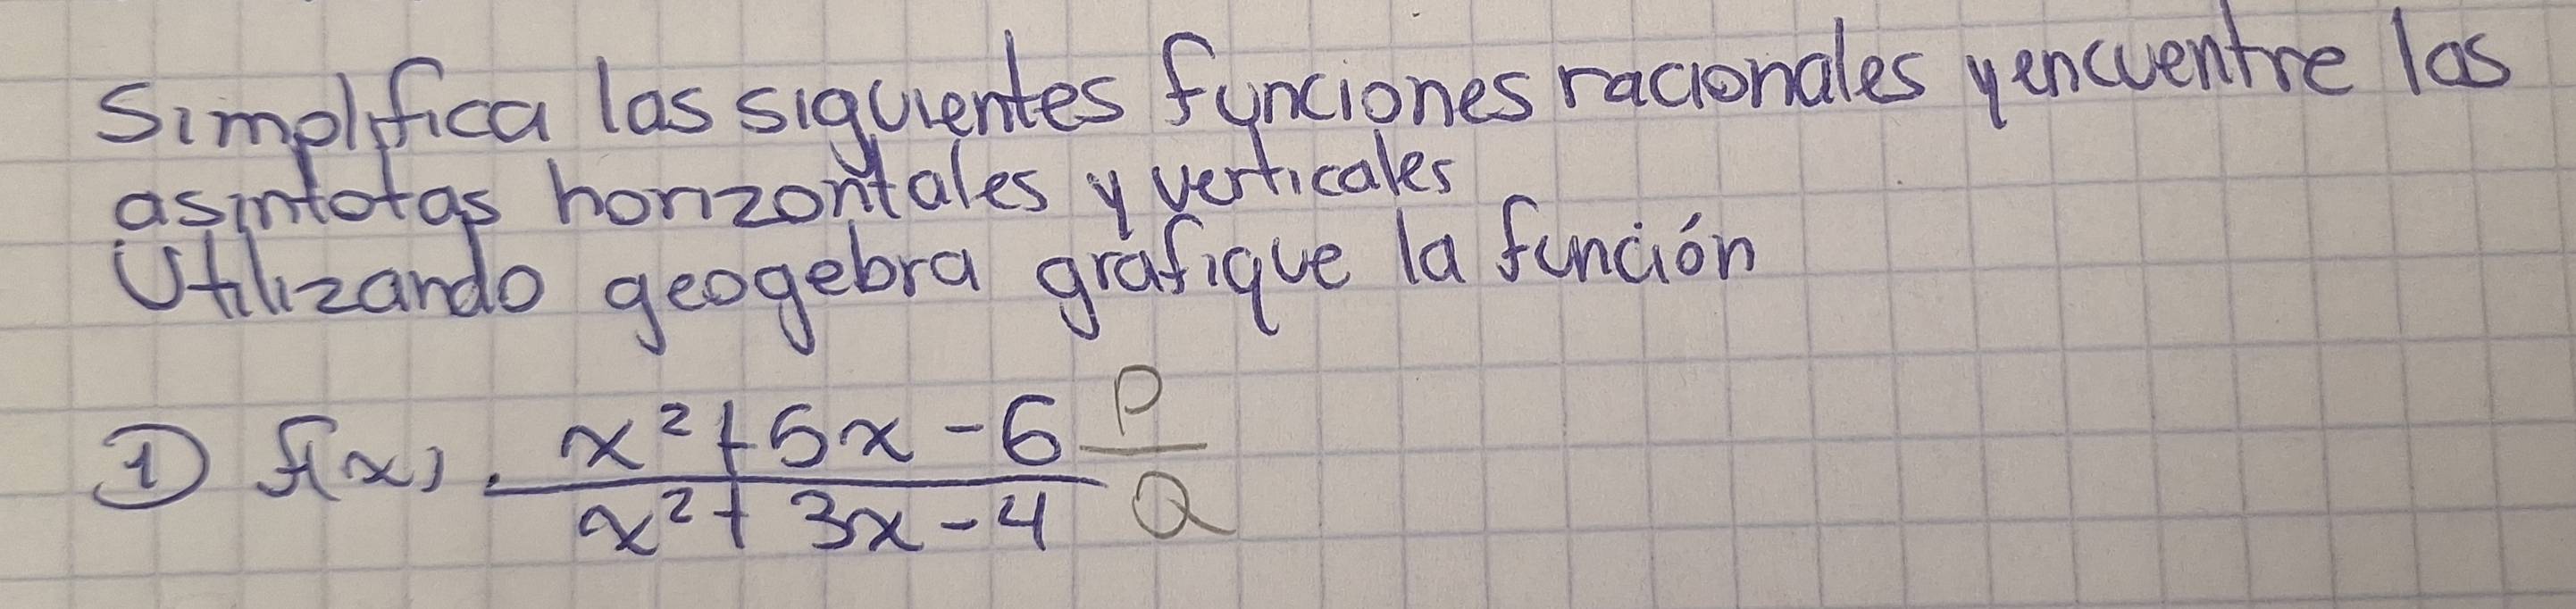 Simplifica las siguientes funciones racionales y encuentre las
asintotas horizontales y verticales
Utilizando geogebra grafique la función
① f(x) = x² + 5x - 6 / x² + 3x - 4 P/Q